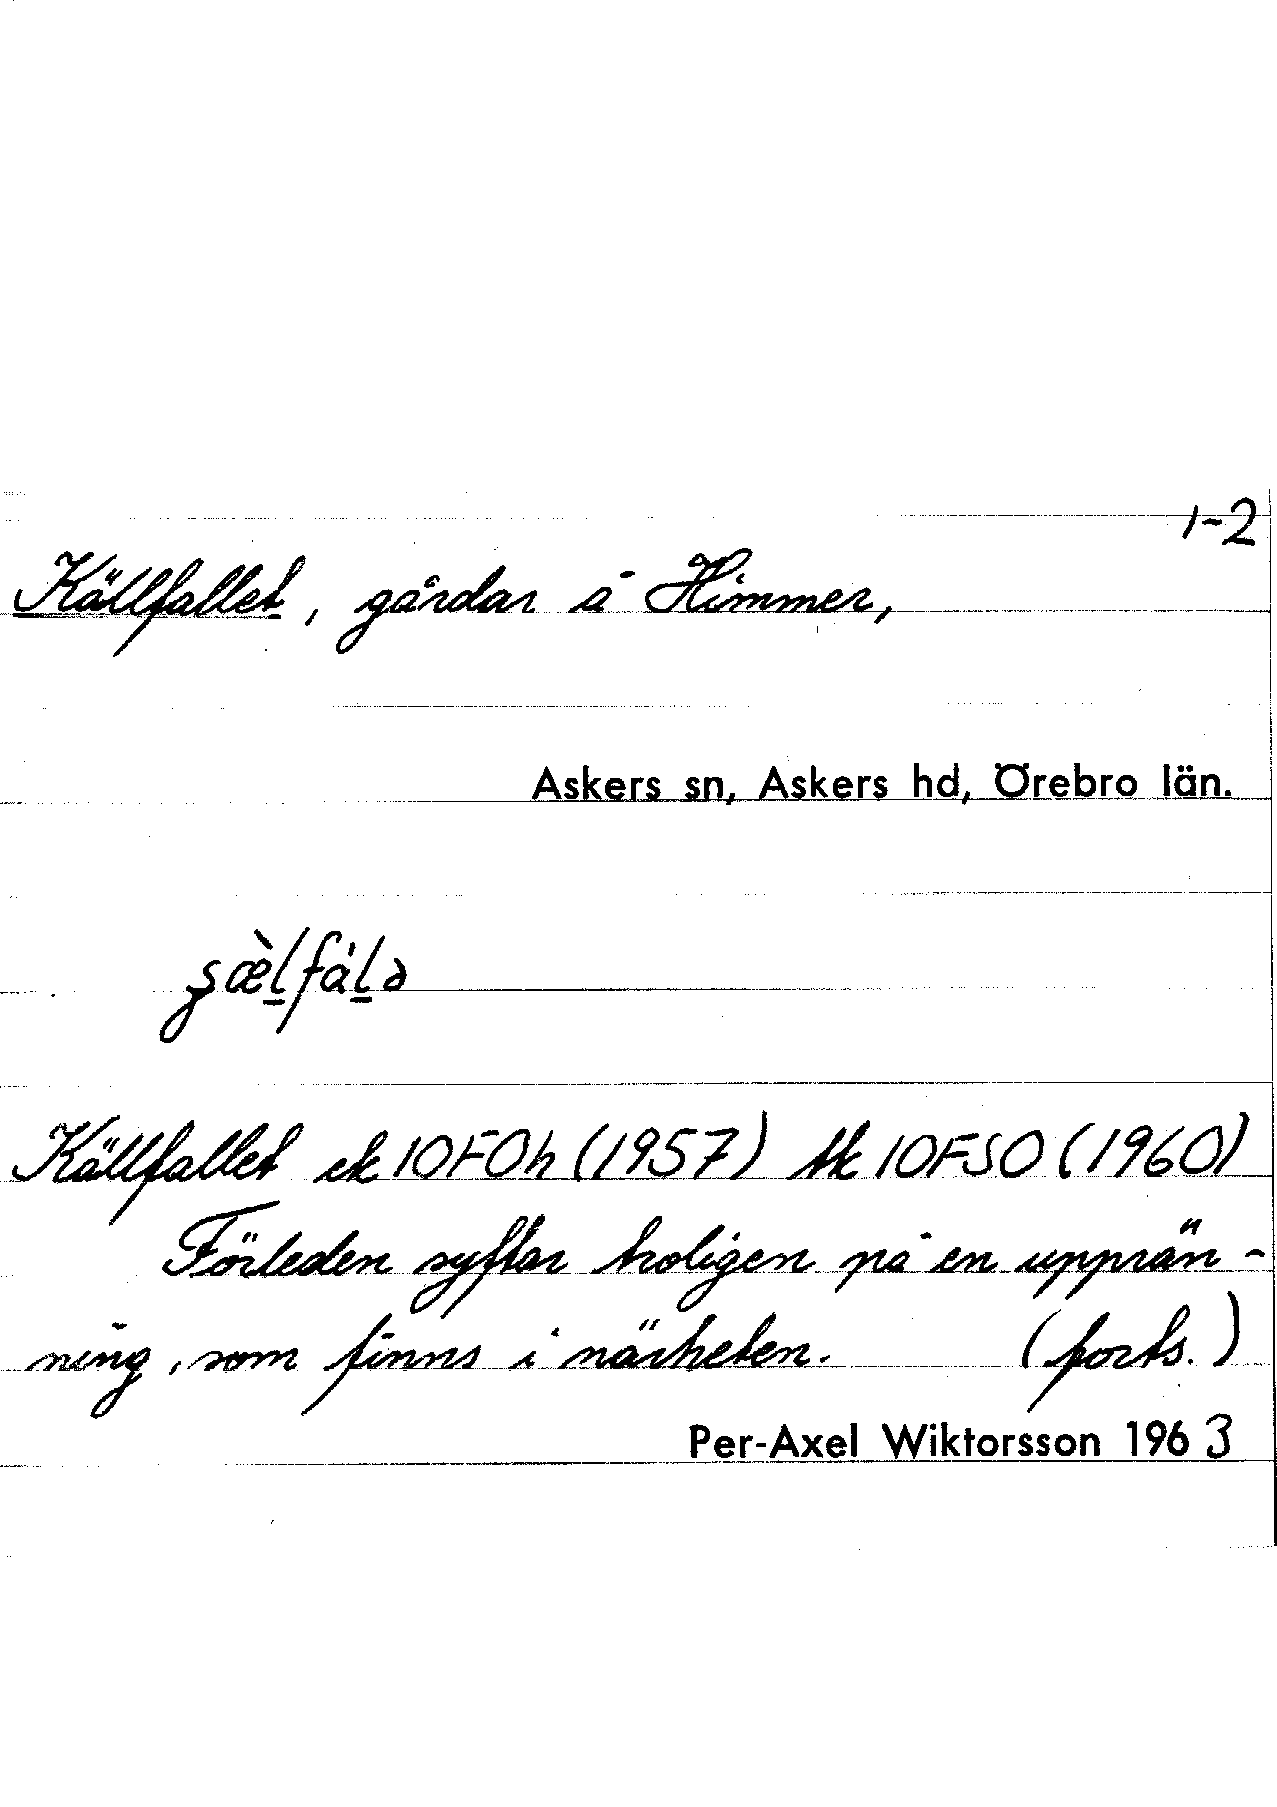 1-2
Källfallet, gårdar å Himmer,
Askers sn, Askers hd, Örebro län.
Källfallet ek 10F0h (1957) tk 10FSO (1960)
Förleden syftar troligen på en upprän-
ning, som finns i närheten. (forts.)
Per-Axel Wiktorsson 1963